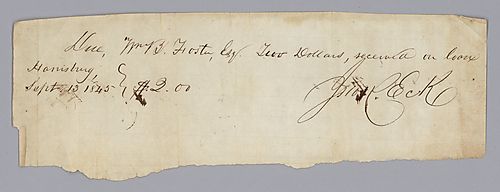 Due, Wm B. Foster, Esq. Two Dollars, received on loan
Harrisburg,
Sept. 13 1845 } $2.00
Eck